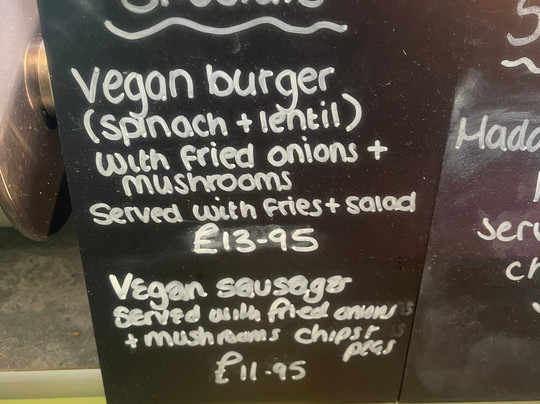 Specials
Vegan burger
(spinach + lentil)
with fried onions +
mushrooms
Served with fries + salad
£13-95
Vegan sausage
served with fried onions
+ mushrooms chips +
peas
£11-95
Hadd
serv
ch